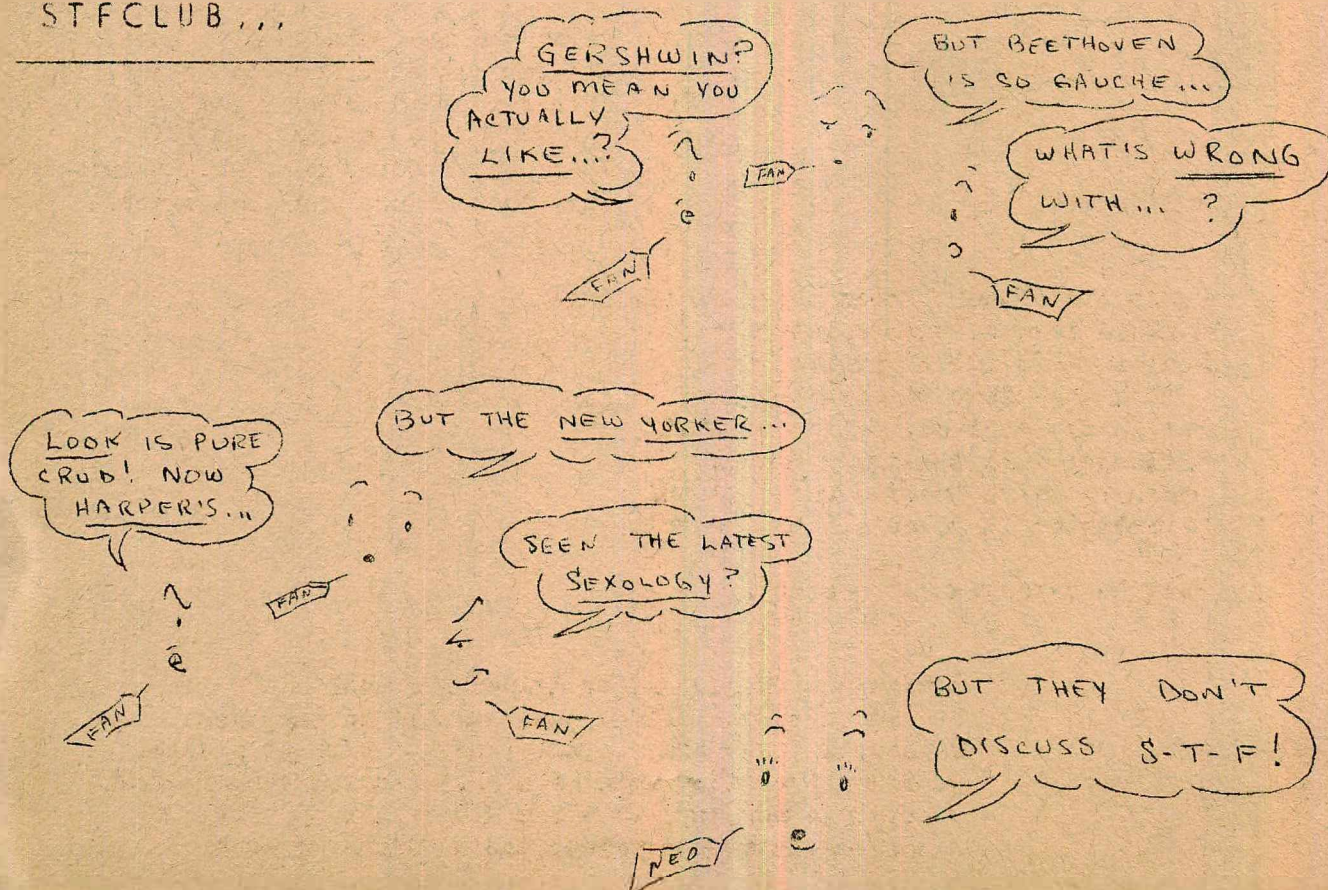 STFCLUB...
GERSHWIN?
YOU MEAN YOU
ACTUALLY
LIKE...?
FAN
FAN
BUT BEETHOVEN
IS SO GAUCHE...
WHAT'S WRONG
WITH... ?
FAN
LOOK IS PURE
CRUD! NOW
HARPER'S...
FAN
BUT THE NEW YORKER...
FAN
SEEN THE LATEST
SEXOLOGY?
FAN
BUT THEY DON'T
DISCUSS S-T-F!
NEO